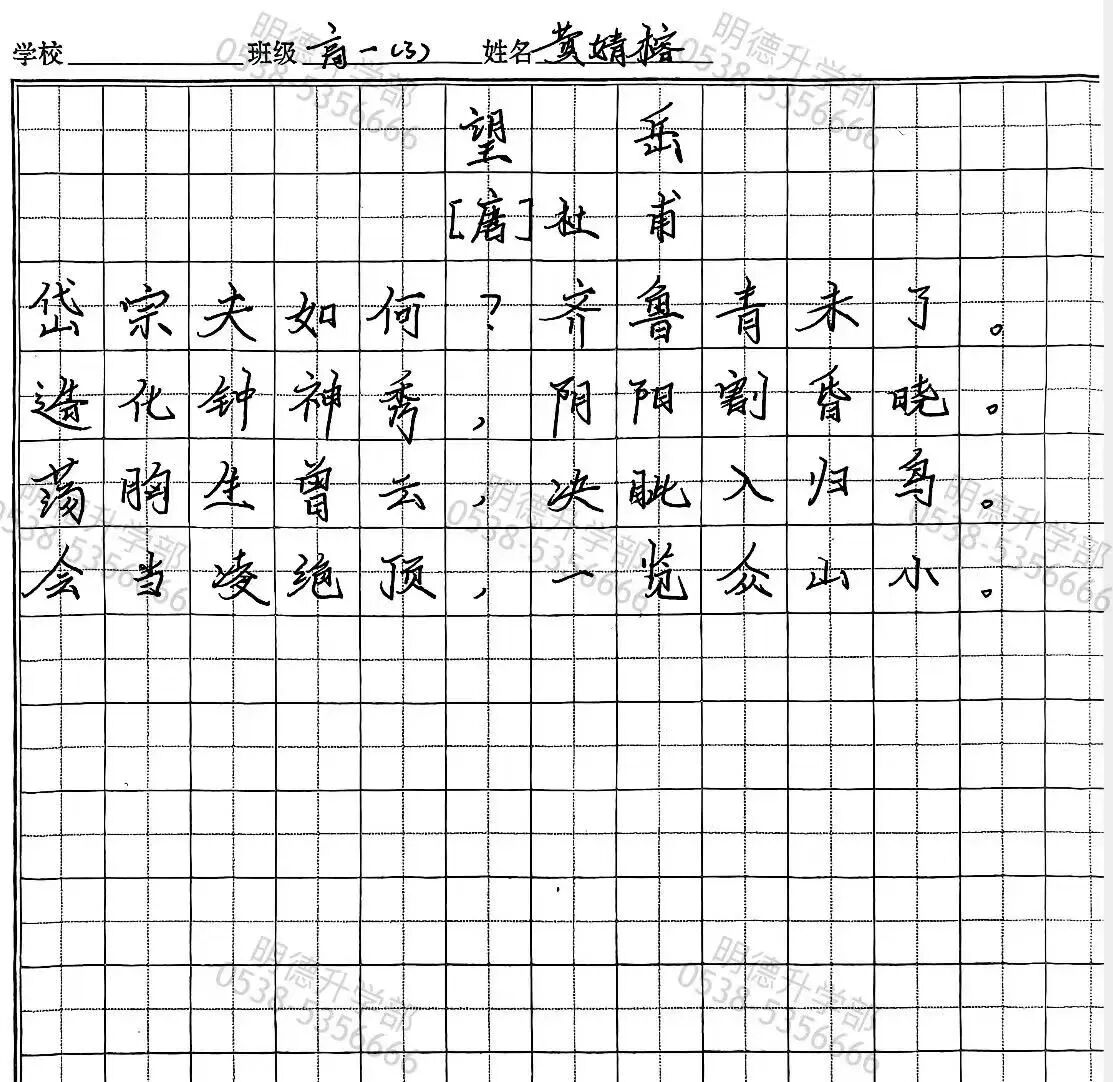 学校 班级 高一(3) 姓名 黄婧榕
望岳
[唐]杜甫
岱宗夫如何?齐鲁青未了。
造化钟神秀,阴阳割昏晓。
荡胸生曾云,决眦入归鸟。
会当凌绝顶,一览众山小。
明德升学部
0538-5356666
明德升学部
0538-5356666
明德升学部
0538-5356666
明德升学部
0538-5356666
明德升学部
0538-5356666
明德升学部
0538-5356666
明德升学部
0538-5356666